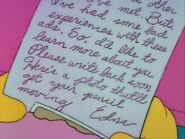 I've met. But,
I've had some bad
experiences with these
ads. So, I'd like to
learn more about you.
Please write back soon
Here's a photo that'll
get your pencil
moving.
Edna